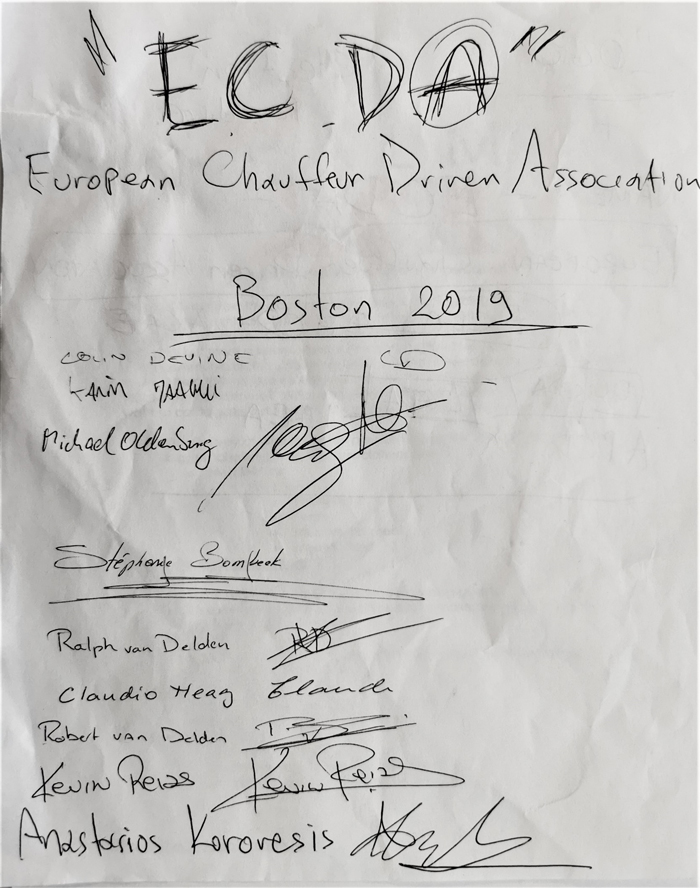 "E.C.DA"
European Chauffeur Driven Association
Boston 2019
COLIN DEVINE CD
KARIM
Michael Oldenburg
Stéphane Bombeek
Ralph van Delden RvD
Claudio Heag Claudi
Robert van Delden
Kevin Reizs Kevin Reizs
Anastasios Korovesis